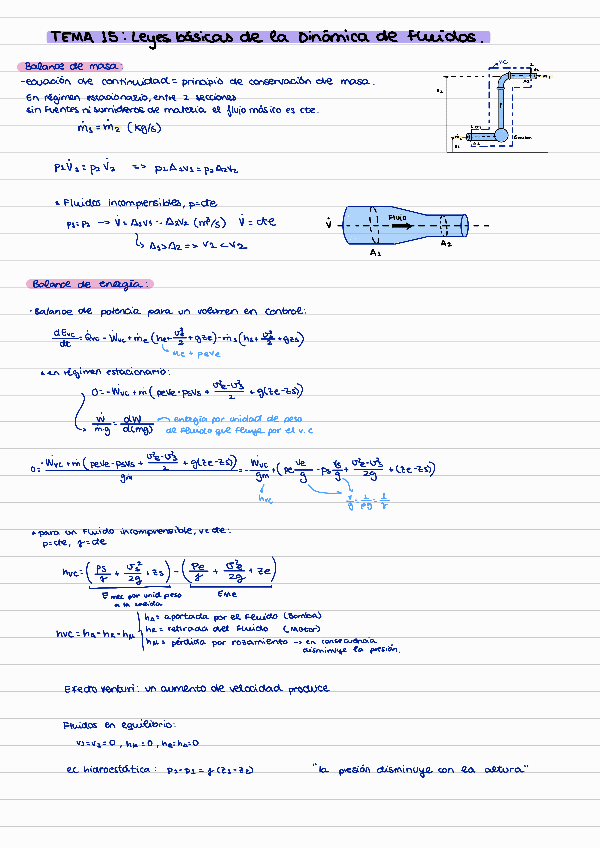 TEMA 15: Leyes básicas de la Dinámica de Fluidos.
Balance de masa
-ecuación de continuidad = principio de conservación de masa.
En régimen estacionario, entre 2 secciones
sin fuentes ni sumideros de materia el flujo másico es cte.
ṁ1 = ṁ2 (kg/s)
ρ1V̇1 = ρ2V̇2 => ρ1A1v1 = ρ2A2v2
* Fluidos incompresibles, ρ=cte
ρ1=ρ2 -> V̇ = A1v1 = A2v2 (m³/s) V̇ = cte
A1>A2 => v1 < v2
V̇ Flujo A1 A2
Balance de energía:
·Balance de potencia para un volumen en control:
dEvc/dt = Q̇vc - Ẇvc + ṁe (he + ve²/2 + gze) - ṁs (hs + vs²/2 + gzs)
ue + peve
* en régimen estacionario:
0 = -Ẇvc + ṁ (peve - psvs + (ve²-vs²)/2 + g(ze-zs))
Ẇ/ṁg = dW/d(mg) energía por unidad de peso
de fluido que fluye por el v.c
0 = (-Ẇvc + ṁ (peve - psvs + (ve²-vs²)/2 + g(ze-zs)))/gṁ = -Ẇvc/gṁ + (pe ve/g - ps vs/g + (ve²-vs²)/2g + (ze-zs))
hvc
v/g = 1/ρg = 1/γ
* para un fluido incompresible, v=cte:
ρ=cte, γ=cte
hvc = (ps/γ + vs²/2g + zs) - (pe/γ + ve²/2g + ze)
Emec por unid peso
a la salida
EMe
hA = aportada por el fluido (Bomba)
hvc = hA - hR - hµ
hR = retirada del fluido (Motor)
hµ = pérdida por rozamiento -> en consecuencia
disminuye la presión.
Efecto Venturi: un aumento de velocidad produce
Fluidos en equilibrio:
v1=v2=0, hµ=0, hR=hA=0
ec hidroestática: p2-p1 = γ(z1-z2) "la presión disminuye con la altura"